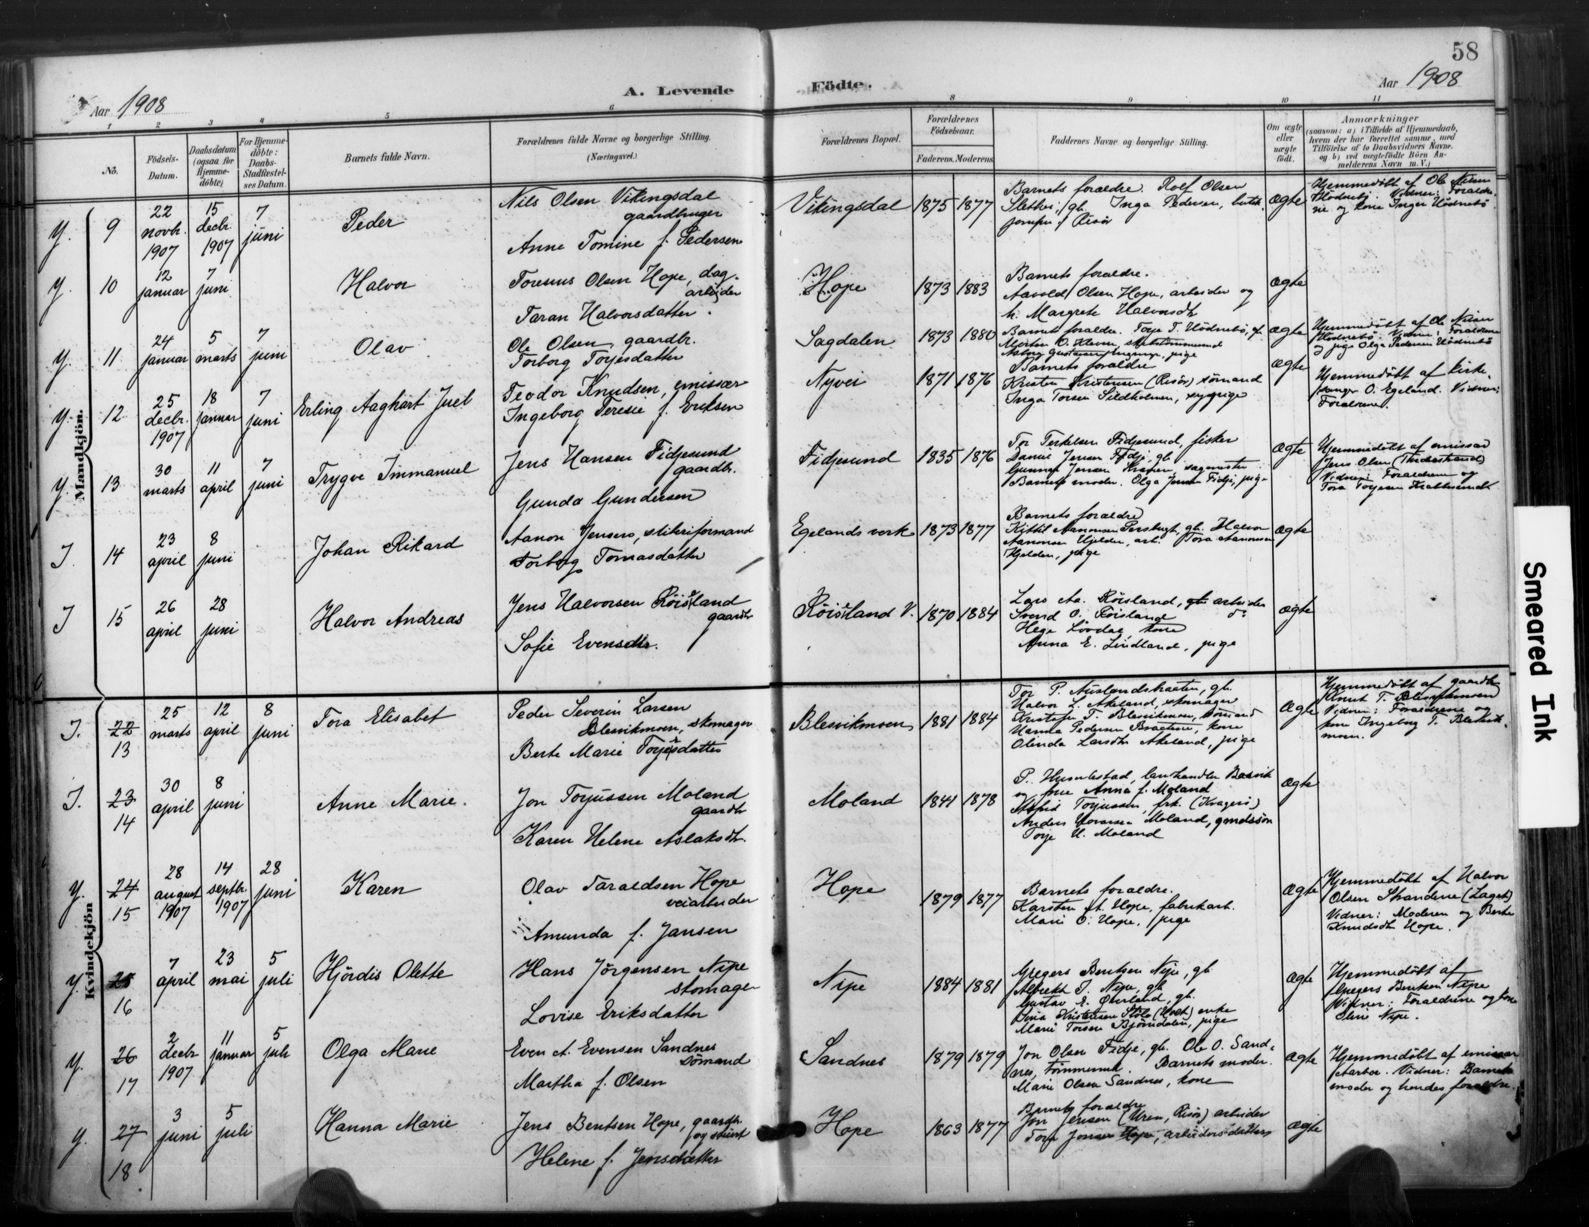 58
Aar 1908
A. Levende
Födte.
Aar 1908
1
2
3
4
5
6
8
9
10
11
No.
Födsels-
Datum.
Daabsdatum
(ogsaa for
Hjemme-
döbte)
For Hjemme-
döbte:
Daabs-
Stadfæstel-
ses Datum.
Barnets fulde Navn.
Forældrenes fulde Navne og borgerlige Stilling.
(Næringsvei.)
Forældrenes Bopæl.
Forældrenes
Födselsaar.
Faderens.
Moderens
Faddernes Navne og borgerlige Stilling.
Om ægte
eller
uægte
födt.
Anmærkninger
(saasom: a) i Tilfælde af Hjemmedaab,
hvem der har forrettet samme, med
Tilföielse af to Daabsvidners Navne.
og b) ved uægtefödte Börn An-
melderens Navn m. V.)
Mandkjön.
Y. 9
22 novbr. 1907
15 decbr. 1907
7 juni
Peder
Nils Olsen Vikingsdal
gaardbruger
Anne Tomine f. Pedersen
Vikingsdal
1875 1877
Barnets forældre. Rolf Olsen
Inga Pedersen,
Risör
Ægte
Hjemmedöbt af Ole
Vidner: Forældre
ne og kone Inger Hödnebö
Y. 10
12 januar
7 juni
Halvor
Olsen Hope, dag-
arbeider
Taran Halvorsdatter
Hope
1873 1883
Barnets forældre.
Olsen Hope, arbeider og
h. Margrete Halvorsdt
Ægte
Y. 11
24 januar
5 marts
7 juni
Olav
Ole Olsen gaardbr.
Torborg Torjesdatter
Sagdalen
1873 1880
Barnets forældre. Torje T. Hödnebö,
pige
Ægte
Hjemmedöbt af Ole
Hödnebö. Vidner: Forældrene
og pige Olga Pedersen Hödnebö
Y. 12
25 decbr. 1907
18 januar
7 juni
Erling Aaghart Juel
Teodor Knudsen, emissær
Ingeborg Terese f. Eriksen
Nyvei
1871 1876
Barnets forældre
Kristen Kristensen (Risör) sömand
Inga Torsen Sildholmen, sypige
Ægte
Hjemmedöbt af kirke-
sanger O. Egeland. Vidner:
Forældrene.
Y. 13
30 marts
11 april
7 juni
Trygve Immanuel
Jens Hansen Fidjesund
gaardbr.
Gunda Gundersen
Fidjesund
1835 1876
Tor Terkelsen Fidjesund, fisker
Jensen Fidje, gb.
Gunner Jensen
Barnets moder. Olga Jensen Fidje, pige
Ægte
Hjemmedöbt af emissær
Jens Olsen
Vidner: Forældrene og
Tora Torjesen
J. 14
23 april
8 juni
Johan Rikard
Aanon Jensen,
Torborg Tomasdatter
Egelands verk
1873 1877
Barnets forældre
Kittil Aanonsen gb. Halvor
Aanonsen Hjelden, arb. Tora Aanonsen
Hjelden, pige
Ægte
J 15
26 april
28 juni
Halvor Andreas
Jens Halvorsen Röisland
gaardbr
Sofie Evensdtr.
Röisland V.
1870 1884
Lars Aa. Röisland, arbeider
Svend O. Röisland do
Hege Lövdal, kone
Anna E. Lindland, pige
Ægte
Kvindekjön
J. 22
13
25 marts
12 april
8 juni
Tora Elisabet
Peder Severin Larsen
Blesvikmoen, skomager
Berte Marie Torjesdatter
Blesvikmoen
1881 1884
Tor P. gb.
Halvor L. Akeland, skomager
Kristofer T. Blesvikmoen, sömand
Hanna Pedersen Braaten, kone
Olinda Larsdtr Akeland, pige
Ægte
Hjemmedöbt af gaardbr
Knut T. Blesvikmoen
Vidner: Forældrene og
kone Ingeborg T. Blesvik-
moen.
J. 23
14
30 april
8 juni
Anne Marie.
Jon Torjussen Moland
gaardbr
Karen Helene Aslaksdtr.
Moland
1844 1878
P. Hjemlestad, landhandler
og frue Anna f. Moland
Torjussen, frk. (Kragerö)
Anders Moland, gmdssön
Torje H. Moland
Ægte
Y. 24
15
28 august 1907
14 septbr. 1907
28 juni
Karen
Olav Taraldsen Hope
veiarbeider
Amunda f. Jansen
Hope
1879 1877
Barnets forældre.
Karsten A. Hope, fabrikarb.
Marie O. Hope, pige
Ægte
Hjemmedöbt af Halvor
Olsen Strandene
Vidner: Moderen og Berte
Knudsdt Hope.
Y. 25
16
7 april
23 mai
5 juli
Hjördis Olette
Hans Jörgensen Nipe
skomager
Lovise Eriksdatter
Nipe
1884 1881
Gregers Bentsen Nipe, gb
Albrekt T. Nipe, gb
Gustav E. Överland, gb.
Kristensen (Holt) enke
Marie Torsen Björndalen, pige
Ægte
Hjemmedöbt af
Gregers Bentsen Nipe
Vidner: Forældrene og kone
Nipe.
Y. 26
17
2 decbr 1907
11 januar
5 juli
Olga Marie
Even A. Evensen Sandnes
sömand
Martha f. Olsen
Sandnes
1879 1879
Jon Olsen Fidje, gb. Ole O. Sand-
nes, tömmermd. Barnets moder.
Marie Olsen Sandnes, kone
Ægte
Hjemmedöbt af emissær
Aarbo. Vidner: Barnets
moder og hendes forældre.
Y. 27
18
3 juni
5 juli
Hanna Marie
Jens Bentsen Hope, gaardbr.
Helene f. Jensdatter
Hope
1863 1877
Barnets forældre
Jon Jensen (Uren, Risör) arbeider
Tora Jonsen Hope, arbeidersdatter
Ægte
Smeared Ink